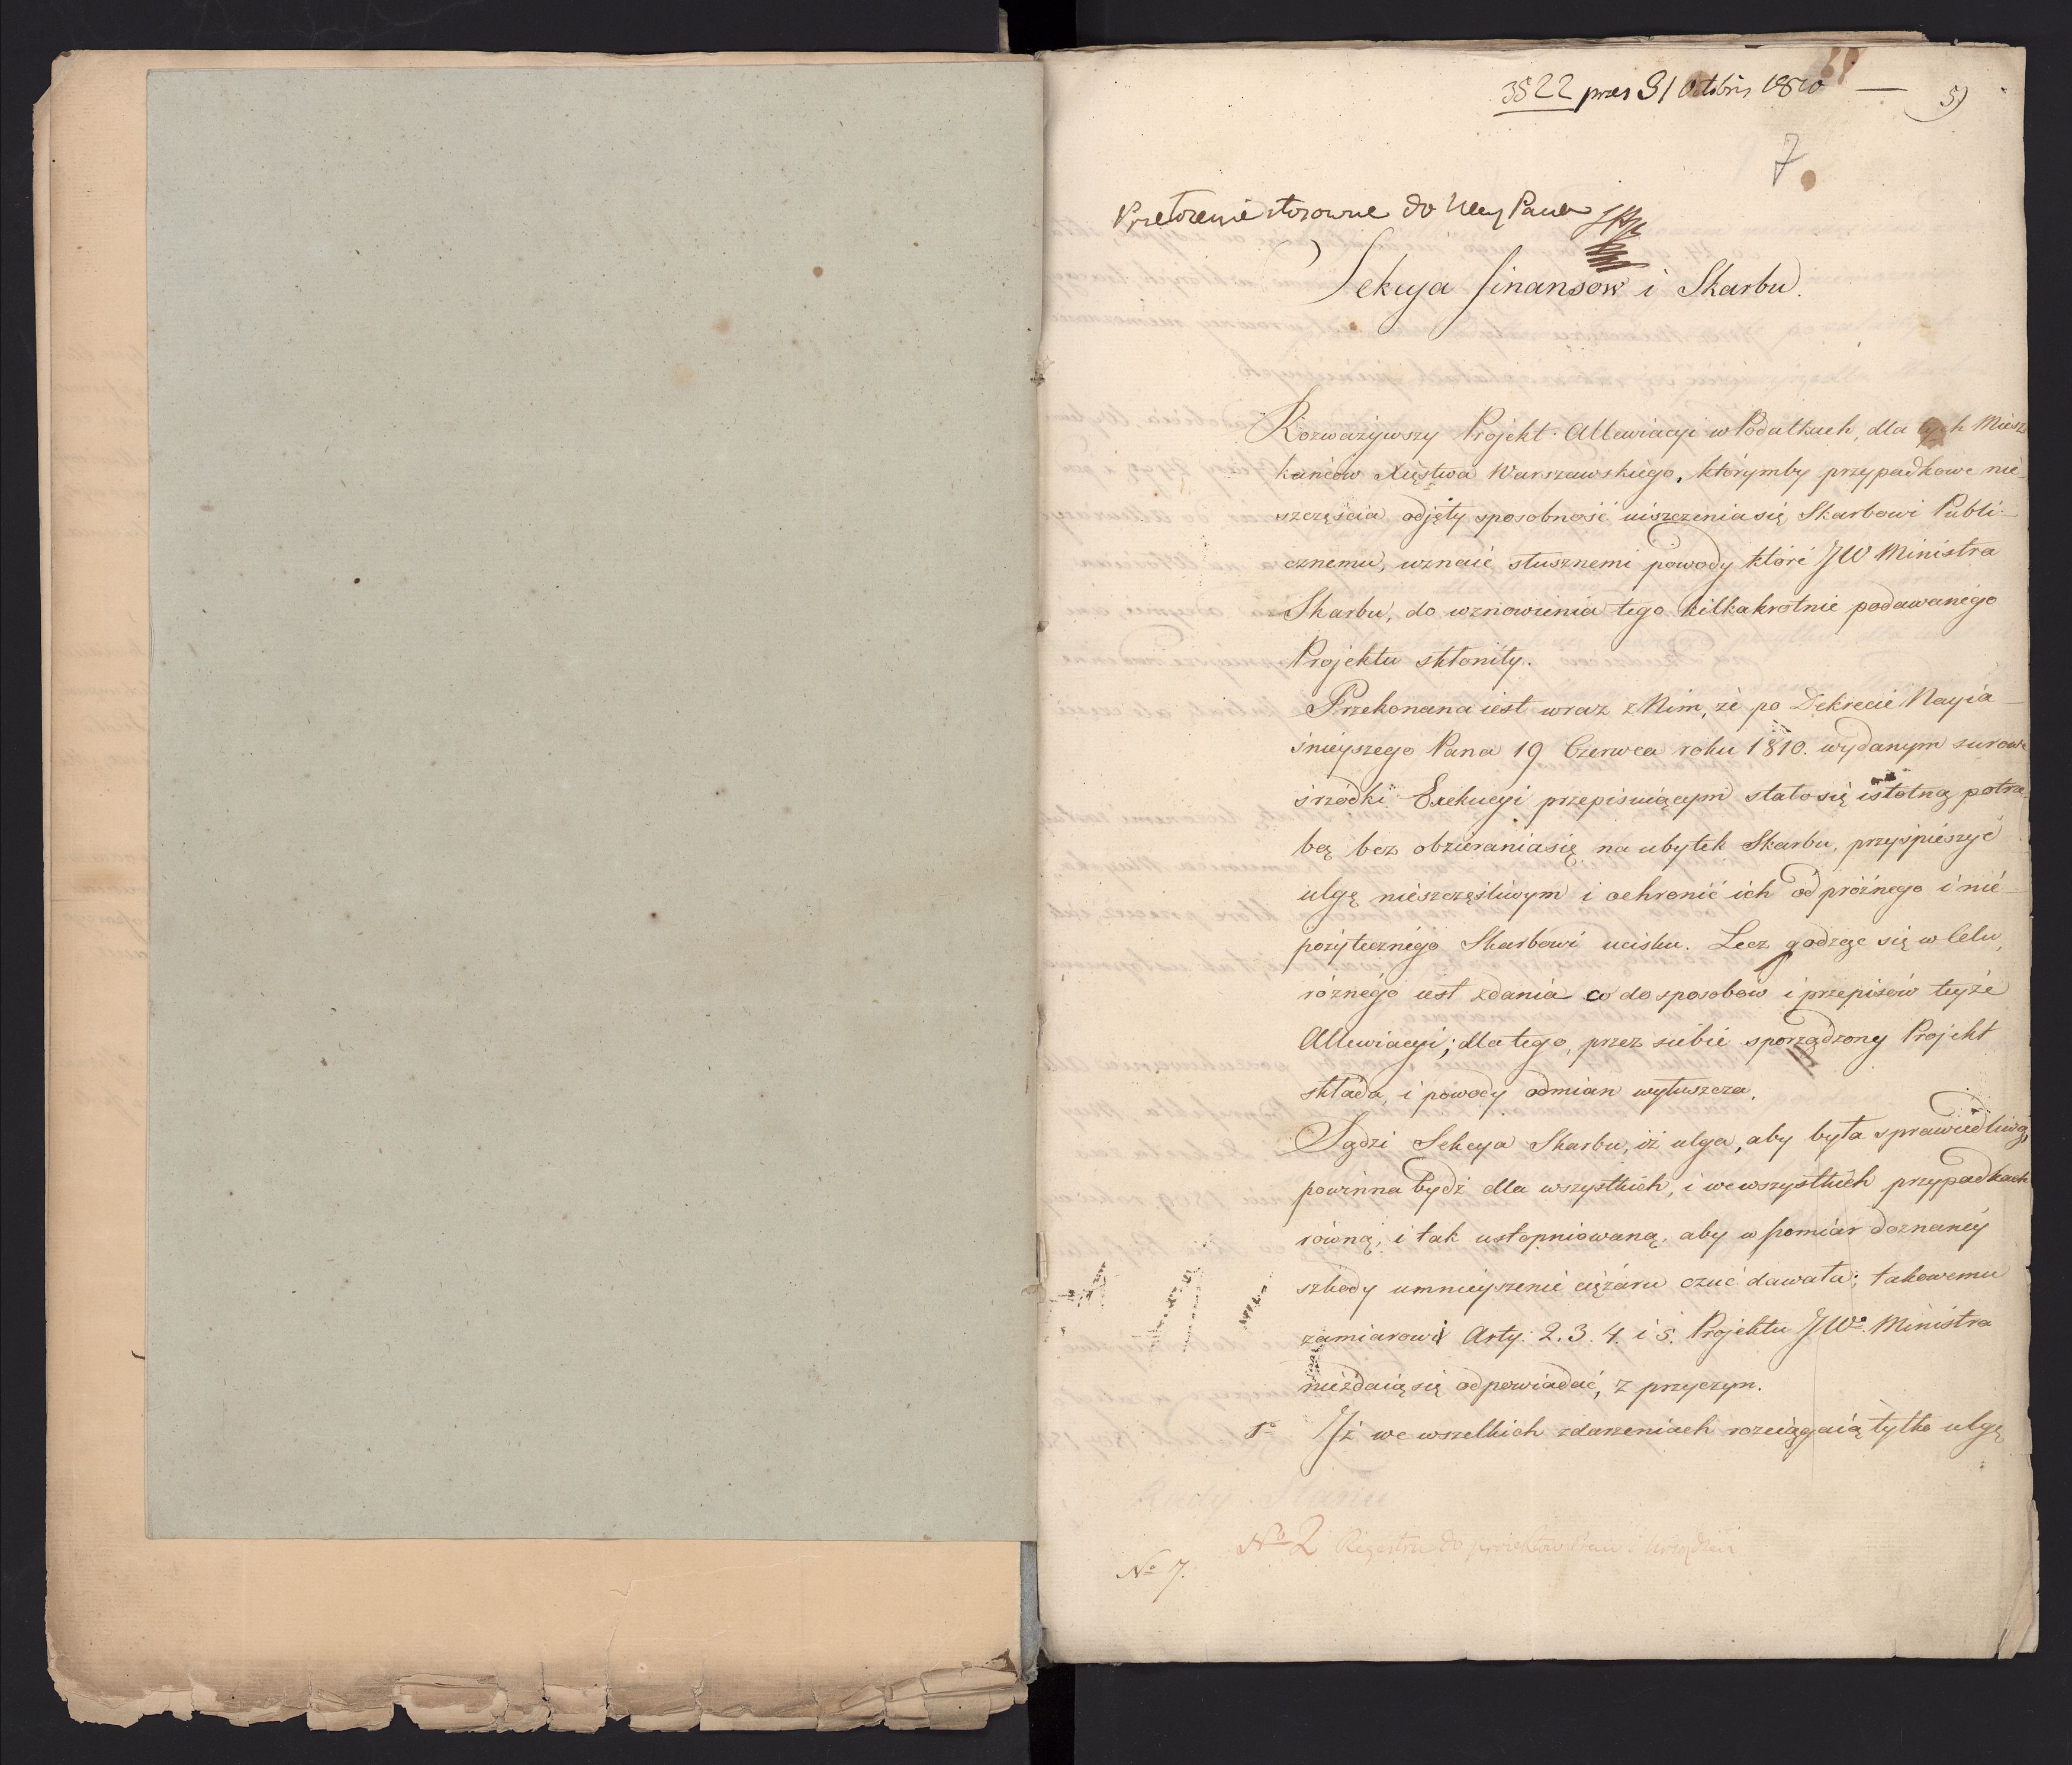 3522 pres 31 Octobris 1810 — 5)
7
Przełożenie stosowne do Uwag Pana
Sekcyja finansow i Skarbu.
Rozważywszy Projekt Allewiacyi w Podatkach, dla tych Miesz
kańcow Xięstwa Warszawskiego, którymby przypadkowe nie-
szczęścia odjęły sposobność uiszczenia się Skarbowi Publi-
cznemu, uznaie słusznemi powody które JW Ministra
Skarbu, do wznowienia tego kilkakrotnie podawanego
Projektu skłoniły.
Przekonana iest wraz z Nim, że po Dekrecie Nayia-
śnieyszego Pana 19 Czerwca roku 1810. wydanym surowe
śrzodki Exekucyi przepisuiącym stało się istotną potrze-
bą bez obzierania się na ubytek Skarbu, przyśpieszyć
ulgę nieszczęśliwym i ochronić ich od próżnego i nie-
pożytecznego Skarbowi ucisku. Lecz godząc się w Celu,
różnego iest zdania co do sposobow i przepisów teyże
Allewiacyi; dla tego, przez siebie sporządzony Projekt
składa, i powody odmian wyłuszcza.
Sądzi Sekcya Skarbu, iż ulga, aby była sprawiedliwą,
powinna bydź dla wszystkich, i we wszystkich przypadkach
równą, i tak ustopniowaną, aby w pomiar doznaney
szkody umnieyszenie ciężaru czuć dawała; takowemu
zamiarowi Arty: 2. 3. 4. i 5. Projektu JWo. Ministra
niezdaią się odpowiadać, z przyczyn.
1o Iż we wszelkich zdarzeniach rozciągaią tylko ulgę
Rady Stanu
No 2 Regestru do proiektow Praw i Urządzeń
No 7.